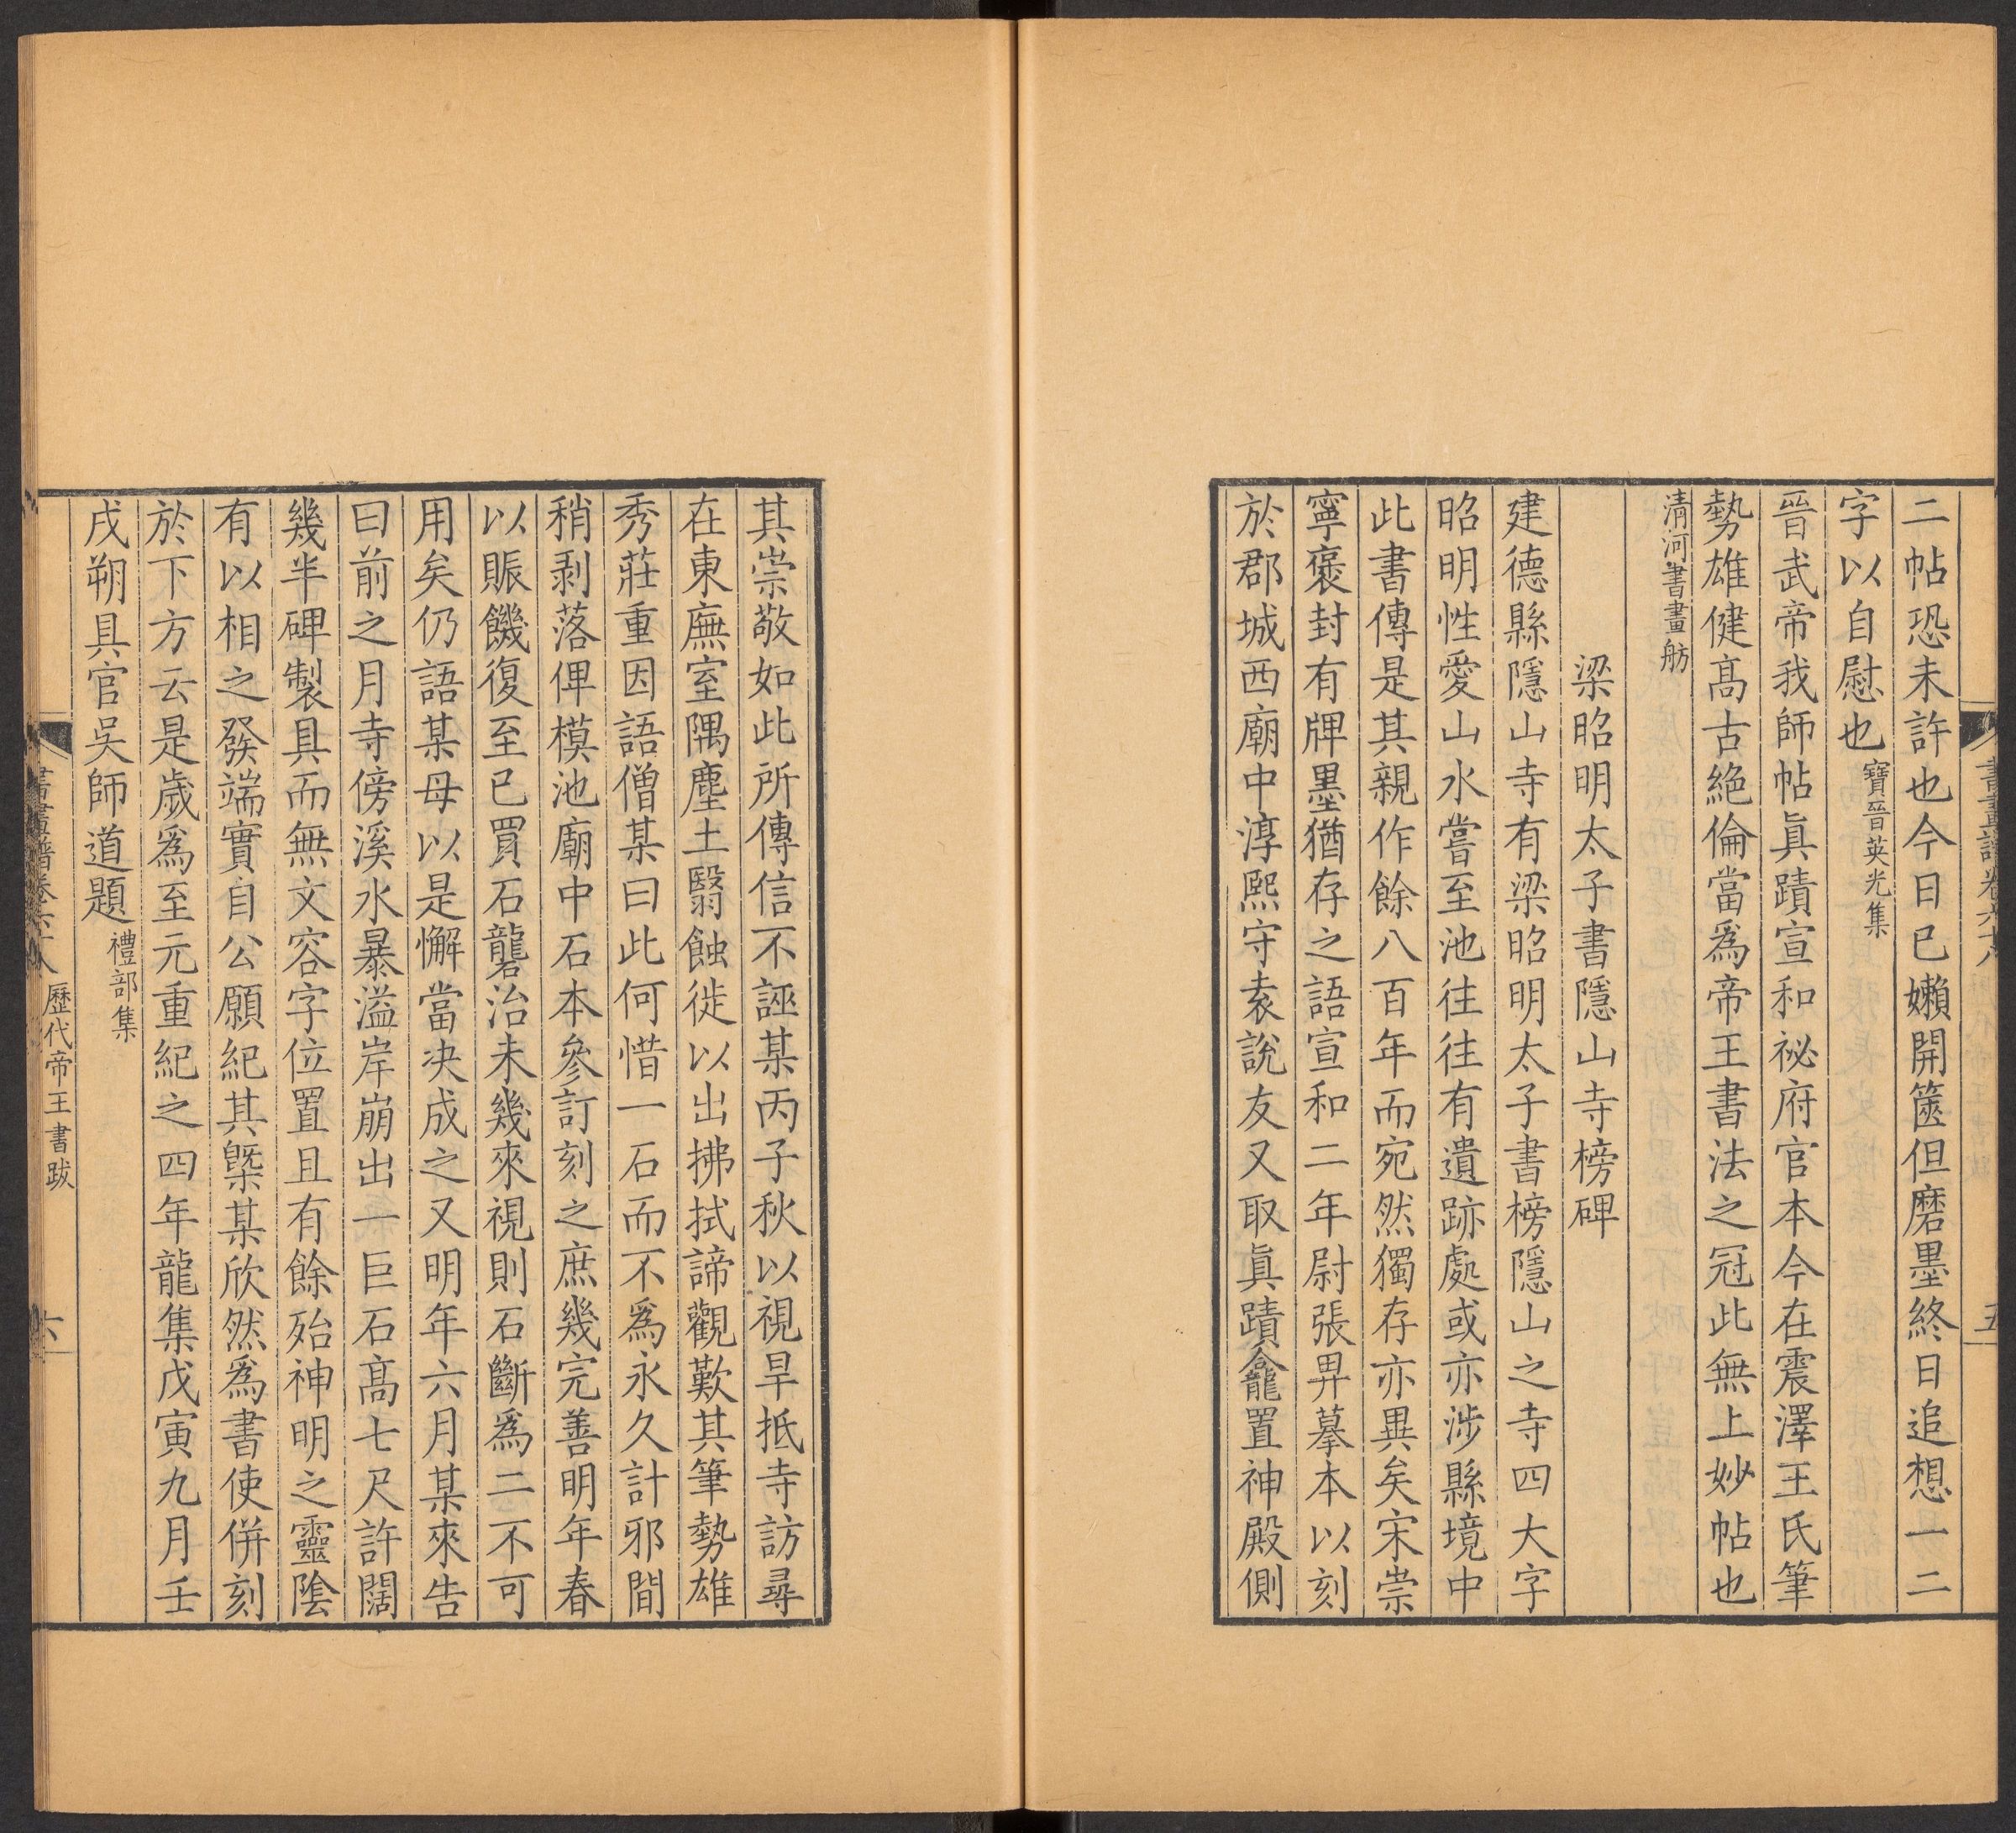 二帖恐未許也今日已嬾開篋但磨墨終日追想一二
字以自慰也寶晉英光集
晉武帝我師帖眞蹟宣和祕府官本今在震澤王氏筆
勢雄健高古絶倫當爲帝王書法之冠此無上妙帖也
淸河書畫舫
梁昭明太子書隱山寺榜碑
建德縣隱山寺有梁昭明太子書榜隱山之寺四大字
昭明性愛山水嘗至池往往有遺跡處或亦涉縣境中
此書傳是其親作餘八百年而宛然獨存亦異矣宋崇
寧褒封有牌墨猶存之語宣和二年尉張畀摹本以刻
於郡城西廟中淳熙守袁說友又取眞蹟龕置神殿側
其崇敬如此所傳信不誣某丙子秋以視旱抵寺訪尋
在東廡室隅塵土翳蝕徙以出拂拭諦觀歎其筆勢雄
秀莊重因語僧某曰此何惜一石而不爲永久計邪閒
稍剥落俾模池廟中石本參訂刻之庶幾完善明年春
以賑饑復至已買石礱治未幾來視則石斷爲二不可
用矣仍語某毋以是懈當决成之又明年六月某來告
曰前之月寺傍溪水暴溢岸崩出一巨石高七尺許闊
幾半碑製具而無文容字位置且有餘殆神明之靈陰
有以相之發端實自公願紀其槩某欣然爲書使併刻
於下方云是歲爲至元重紀之四年龍集戊寅九月壬
戌朔具官吳師道題禮部集
書畫譜卷六十八 歷代帝王書跋 六